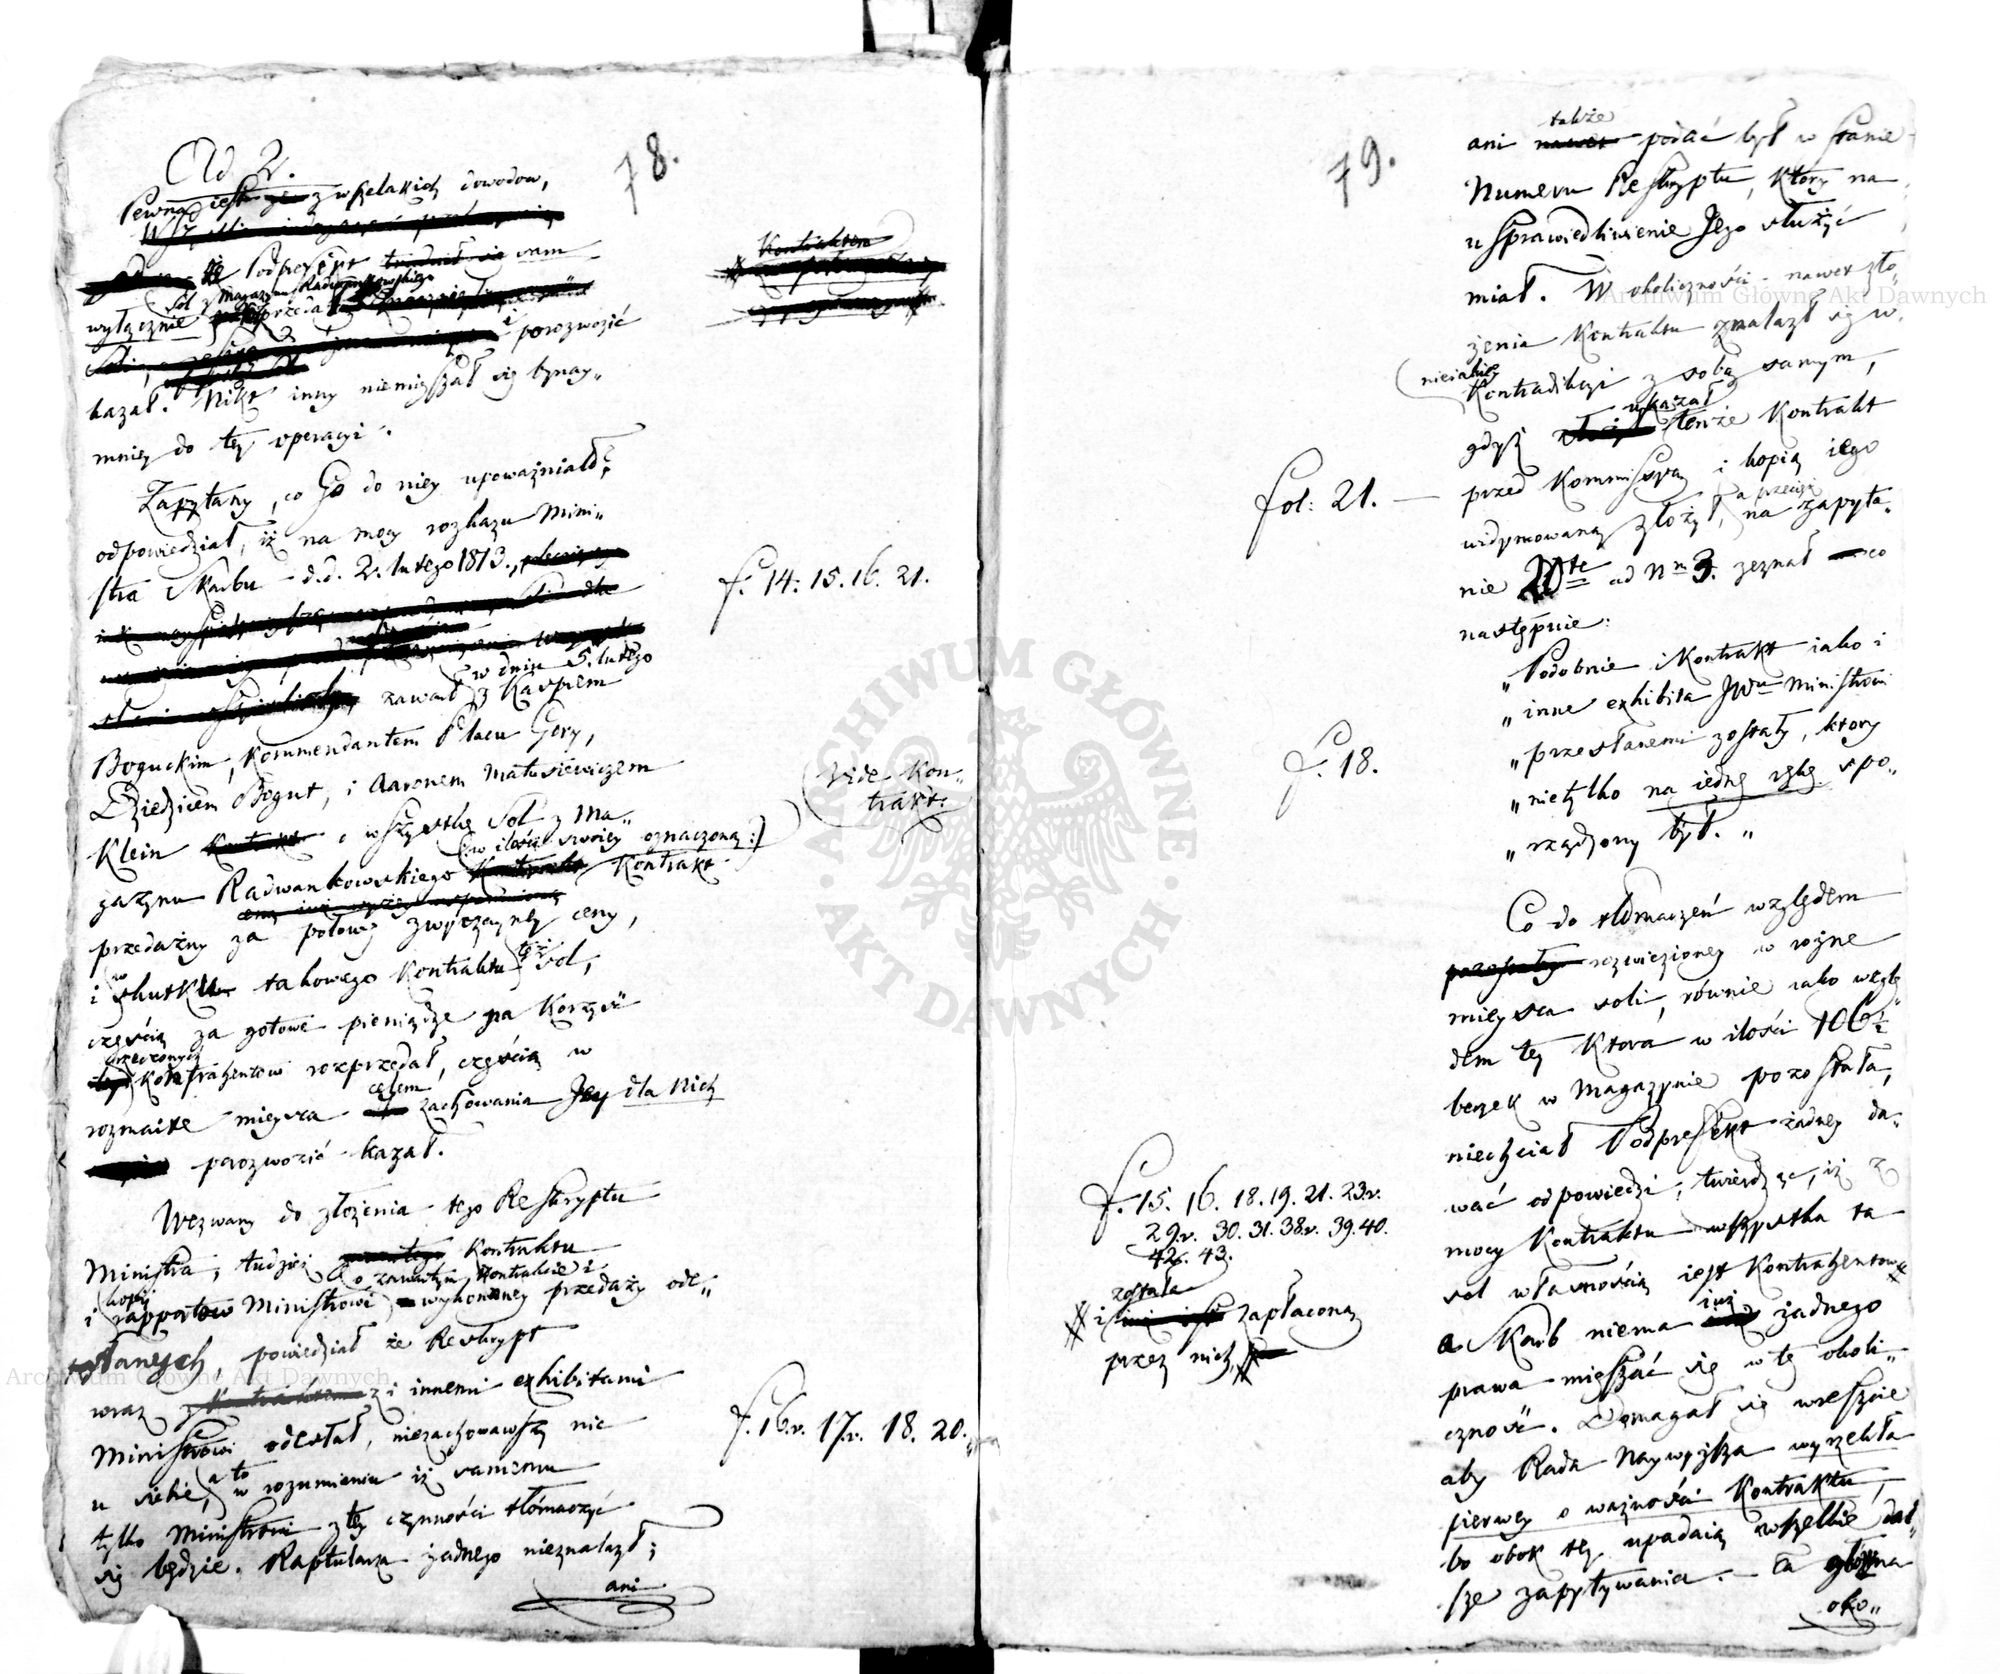 78.
Ad 2.
Pewną jest z wszelakich dowodow,
że Podprefekt sam
wyłącznie Sol z Magazynu Radwankowskiego
przedał i porozwozić
kazał. Nikt inny niemięszał się bynay„
mniey do tey operacyi.
Zapytany, co Go do niey upoważniało,
odpowiedział, iż na mocy rozkazu Mini„
stra Skarbu d.d. 2. lutego 1813.,
f. 14. 15. 16. 21.
w dniu 5. lutego
zawarł z Kasprem
Boguckim, Kommendantem Placu Gory,
Dziedzicem Bogut, i Aaronem Matusiewiczem
Vide Kon„
trakt.
Klein o wszystkę Sol z Ma„
(:w ilości swoiey oznaczoną:)
gazynu Radwankowskiego Kontrakt
przedażny za połowę zwyczayney ceny,
i w skutku takowego Kontraktu też Sol,
częścią za gotowe pieniądze na Korzyść
rzeczonych Kontrahentow rozprzedał, częścią w
rozmaite mieysca celem zachowania Jey dla Nich
porozwozić kazał.
Wezwany do złożenia tego Reskryptu
Ministra, tudzież Kontraktu
i kopii rapportow Ministrowi o zawartym Kontrakcie i wykonaney przedaży ode„
słanych, powiedział że Reskrypt
wraz z i innemi exhibitami
Ministrowi odesłał, niezachowawszy nic
f. 16.v. 17.v. 18. 20.
u siebie, a to w rozumieniu iż samemu
tylko Ministrowi z tey czynności tłómaczyć
się będzie. Raptularza żadnego nieznalazł;
ani
79.
ani także podać był w stanie
Numeru Reskryptu, ktory na
usprawiedliwienie Jego służyć
miał. W okoliczności nawet zło„
żenia Kontraktu znalazł się w
nieiakiey Kontradikcyi z sobą samym,
gdyż ukazał tenże Kontrakt
fol: 21.
przed Kommissyą i kopią iego
widymowaną złożył, a przecież na zapyta„
nie 20te ad Nm 3. zeznał co
następuie:
„Podobnie i Kontrakt iako i
„inne exhibita JWu Ministrowi
f. 18.
„przesłanemi zostały, ktory
„nietylko na iednę rękę spo„
„rządzony był.„
Co do tłómaczeń względem
rozwiezioney w rożne
mieysca soli, równie iako wzglę„
dem tey Ktora w ilości 106½
beczek w Magazynie pozostała,
niechciał Podprefekt żadney da„
f. 15. 16. 18. 19. 21. 23.v.
29.v. 30. 31. 38.v. 39. 40.
42. 43.
wać odpowiedzi, twierdząc, iż z
mocy Kontraktu wszystka ta
sol własnością iest Kontrahentow
i została zapłaconą
przez nich,
a Skarb niema iuż żadnego
prawa mięszać się w tę okoli„
czność. Domagał się wreszcie
aby Rada Naywyższa wyrzekła
pierwey o ważności Kontraktu,
bo obok tey upadaią wszelkie dal„
sze zapytywania. – Ta głowna
oko„
Archiwum Główne Akt Dawnych
Archiwum Główne Akt Dawnych
ARCHIWUM GŁÓWNE AKT DAWNYCH